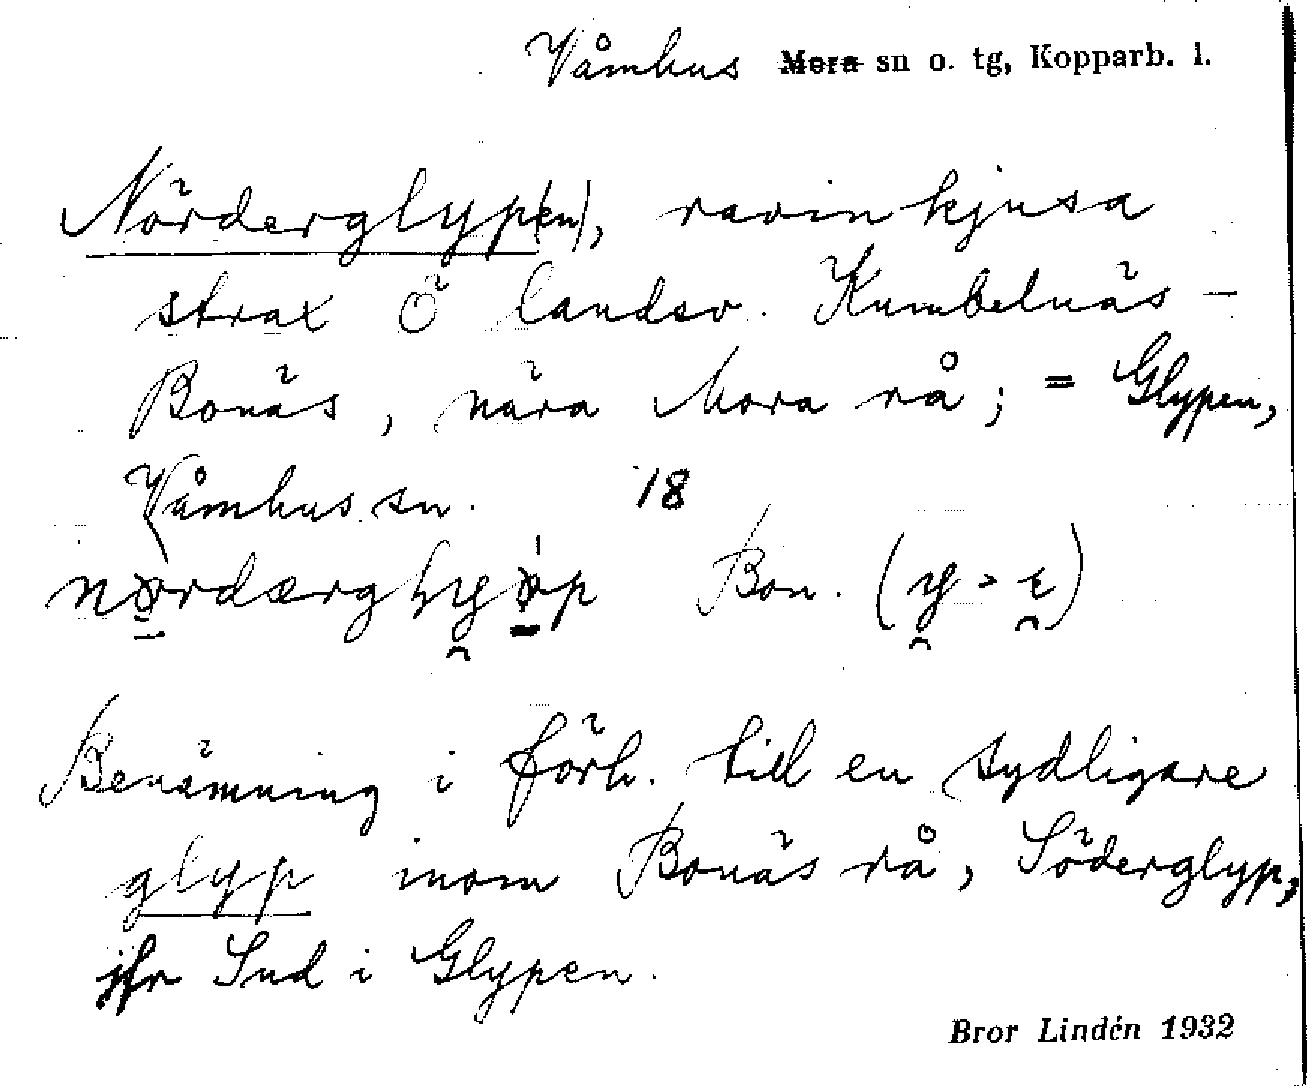 Våmhus Mora sn o. tg, Kopparb. l.
Nörderglyp(en), ravin kjusa
strax Ö landsv. Kumbelnäs -
Bonäs, nära Mora rå; = Glypen,
Våmhus sn. 18
Bon.
Benämning i förh. till en sydligare
glyp inom Bonäs rå, Söderglyp,
jfr Sud i Glypen.
Bror Lindén 1932